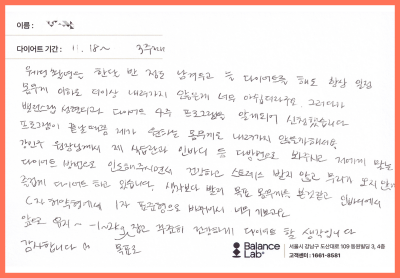 이름 :
다이어트 기간 : 11.18~ 3주차
위해 한달 반 정도 남겨두고 늘 다이어트를 해도 항상 일정
몸무게 이하로 더이상 내려가지 않는게 너무 아쉽더라구요. 그러다가
다이어트 4주 프로그램을 알게되어 신청했습니다
프로그램이 끝날때쯤 제가 원하는 몸무게로 내려가지 않을까해서요.
원장님께서 제 식습관과 인바디 등 다방면으로 봐주시고 저에게 맞는
다이어트 방법으로 인도해주시면서 건강하고 스트레스 받지 않고 무리가 오지 않게
즐겁게 다이어트 하고 있습니다. 생각보다 빨리 목표 몸무게와 인바디에서
C자 에서 I자 표준형으로 바뀌어서 너무 기뻐요
앞으로 유지 ~ -1~2kg 목표로 잡고 꾸준히 건강하게 다이어트 할 생각입니다
감사합니다
Balance Lab
서울시 강남구 도산대로 109 동원빌딩 3, 4층
고객센터 : 1661-8581